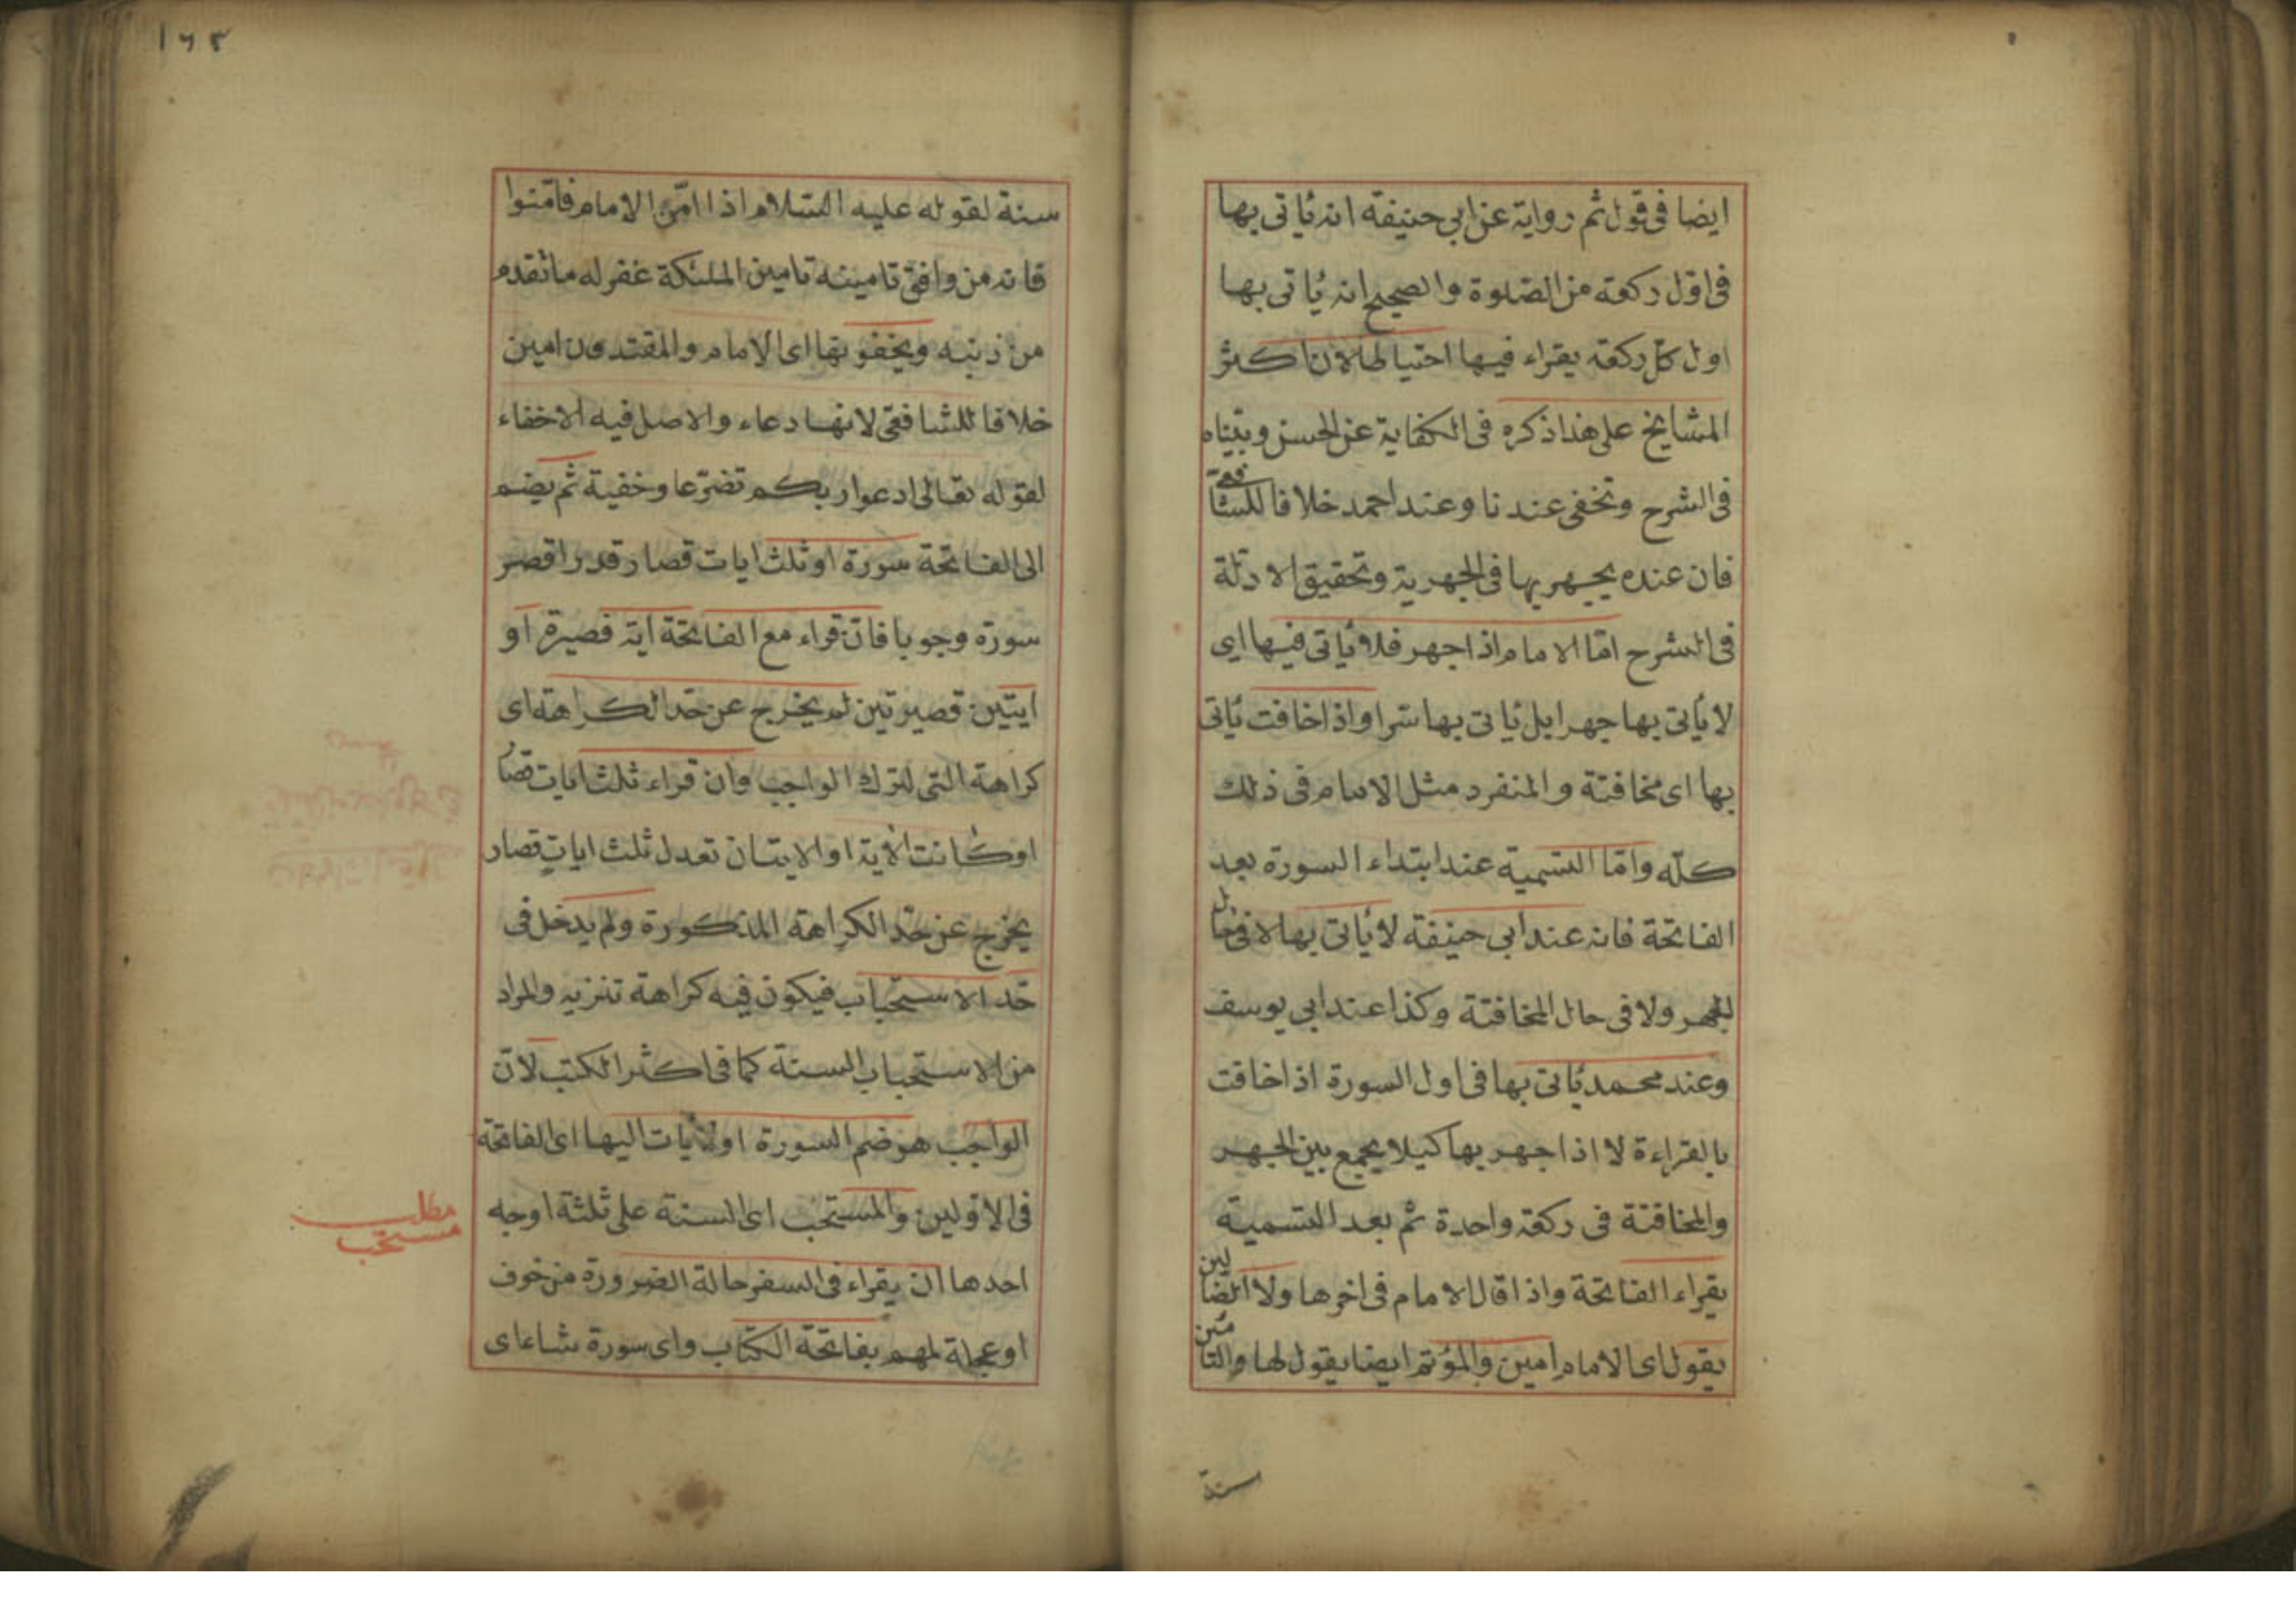 ايضا فى قول ثم رواية عن ابى حنيفة انه يأتى بها
فى اول ركعة من الصلوة والصحيح انه يأتى بها
اول كل ركعة يقراء فيها احتياطا لان اكثر
المشايخ على هذا ذكره فى الكفاية عن الحسن وبيناه
فى الشرح وتخفى عندنا وعند احمد خلافا للشافعى
فان عنده يجهر بها فى الجهرية وتحقيق الادلة
فى الشرح امّا الامام اذا جهر فلا يأتى فيها اى
لا يأتى بها جهرا بل يأتى بها سرا واذا خافت يأتى
بها اى مخافتة والمنفرد مثل الامام فى ذلك
كلّه وامّا التسمية عند ابتداء السورة بعد
الفاتحة فانه عند ابى حنيفة لا يأتى بها لا فى حال
الجهر ولا فى حال المخافتة وكذا عند ابى يوسف
وعند محمد يأتى بها فى اول السورة اذا خافت
بالقراءة لا اذا جهر بها كيلا يجمع بين الجهر
والمخافتة فى ركعة واحدة ثم بعد التسمية
يقراء الفاتحة واذا قال الامام فى اخرها ولا الضالين
يقول اى الامام امين والمؤتم ايضا يقول لها والتأمين
سنة
١٦٣
سنة لقوله عليه السلام اذا امّن الامام فامّنوا
فانه من وافق تامينه تامين الملئكة غفر له ما تقدم
من ذنبه ويخفونها اى الامام والمقتدون امين
خلافا للشافعى لانها دعاء والاصل فيه الاخفاء
لقوله تعالى ادعوا ربكم تضرّعا وخفية ثم يضم
الى الفاتحة سورة او ثلث ايات قصار قدر اقصر
سورة وجوبا فان قراء مع الفاتحة اية قصيرة او
ايتين قصيرتين لم يخرج عن حدّ الكراهة اى
كراهة التى لترك الواجب وان قراء ثلث ايات قصار
او كانت الاية او الايتان تعدل ثلث ايات قصار
يخرج عن حدّ الكراهة المذكورة ولم يدخل فى
حد الاستحباب فيكون فيه كراهة تنزيه والمراد
من الاستحباب السنة كما فى اكثر الكتب لانّ
الواجب هو ضم السورة او الايات اليها اى الفاتحة
فى الاوليين والمستحب اى السنة على ثلثة اوجه
احدها ان يقراء فى السفر حالة الضرورة من خوف
او عجلة لهم بفاتحة الكتاب واى سورة شاء اى
مطلب
مستحب